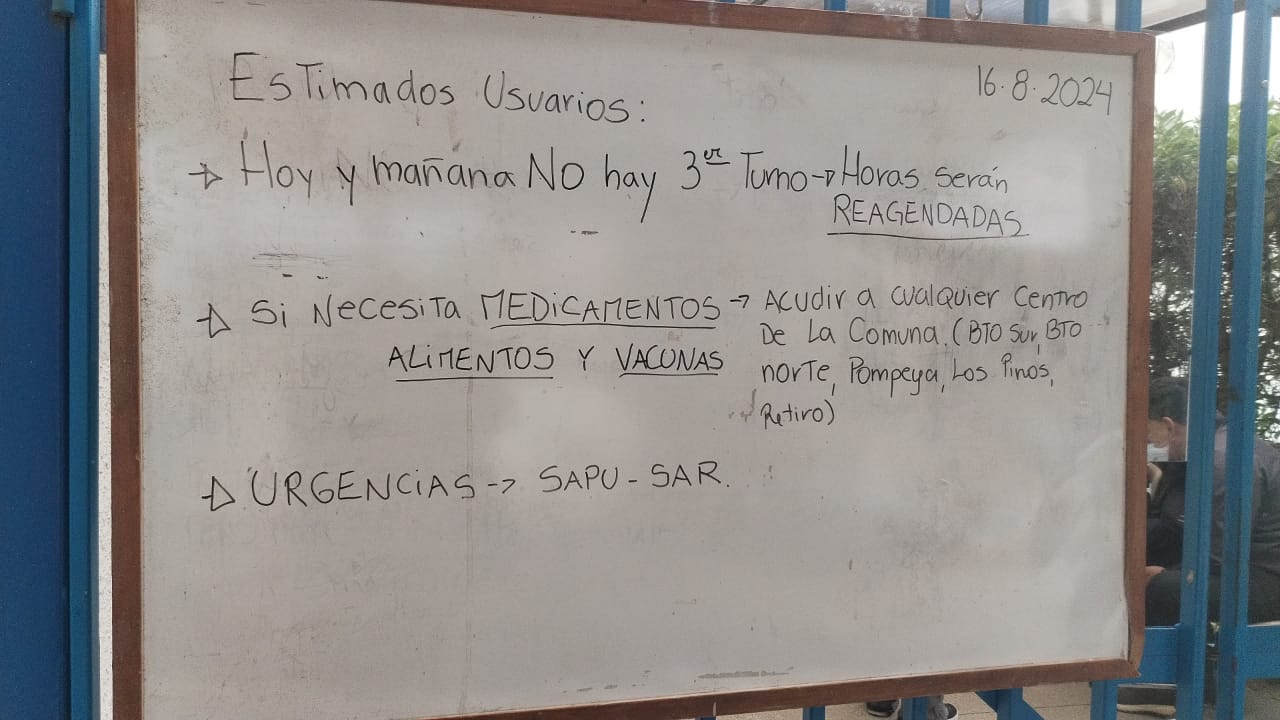 Estimados Usuarios:
16.8.2024
→ Hoy y mañana NO hay 3er Turno → Horas serán
REAGENDADAS
→ Si Necesita MEDICAMENTOS → Acudir a cualquier Centro
ALIMENTOS Y VACUNAS
De La Comuna. (BTO Sur, BTO
norte, Pompeya, Los Pinos,
Retiro)
→ URGENCIAS → SAPU - SAR.